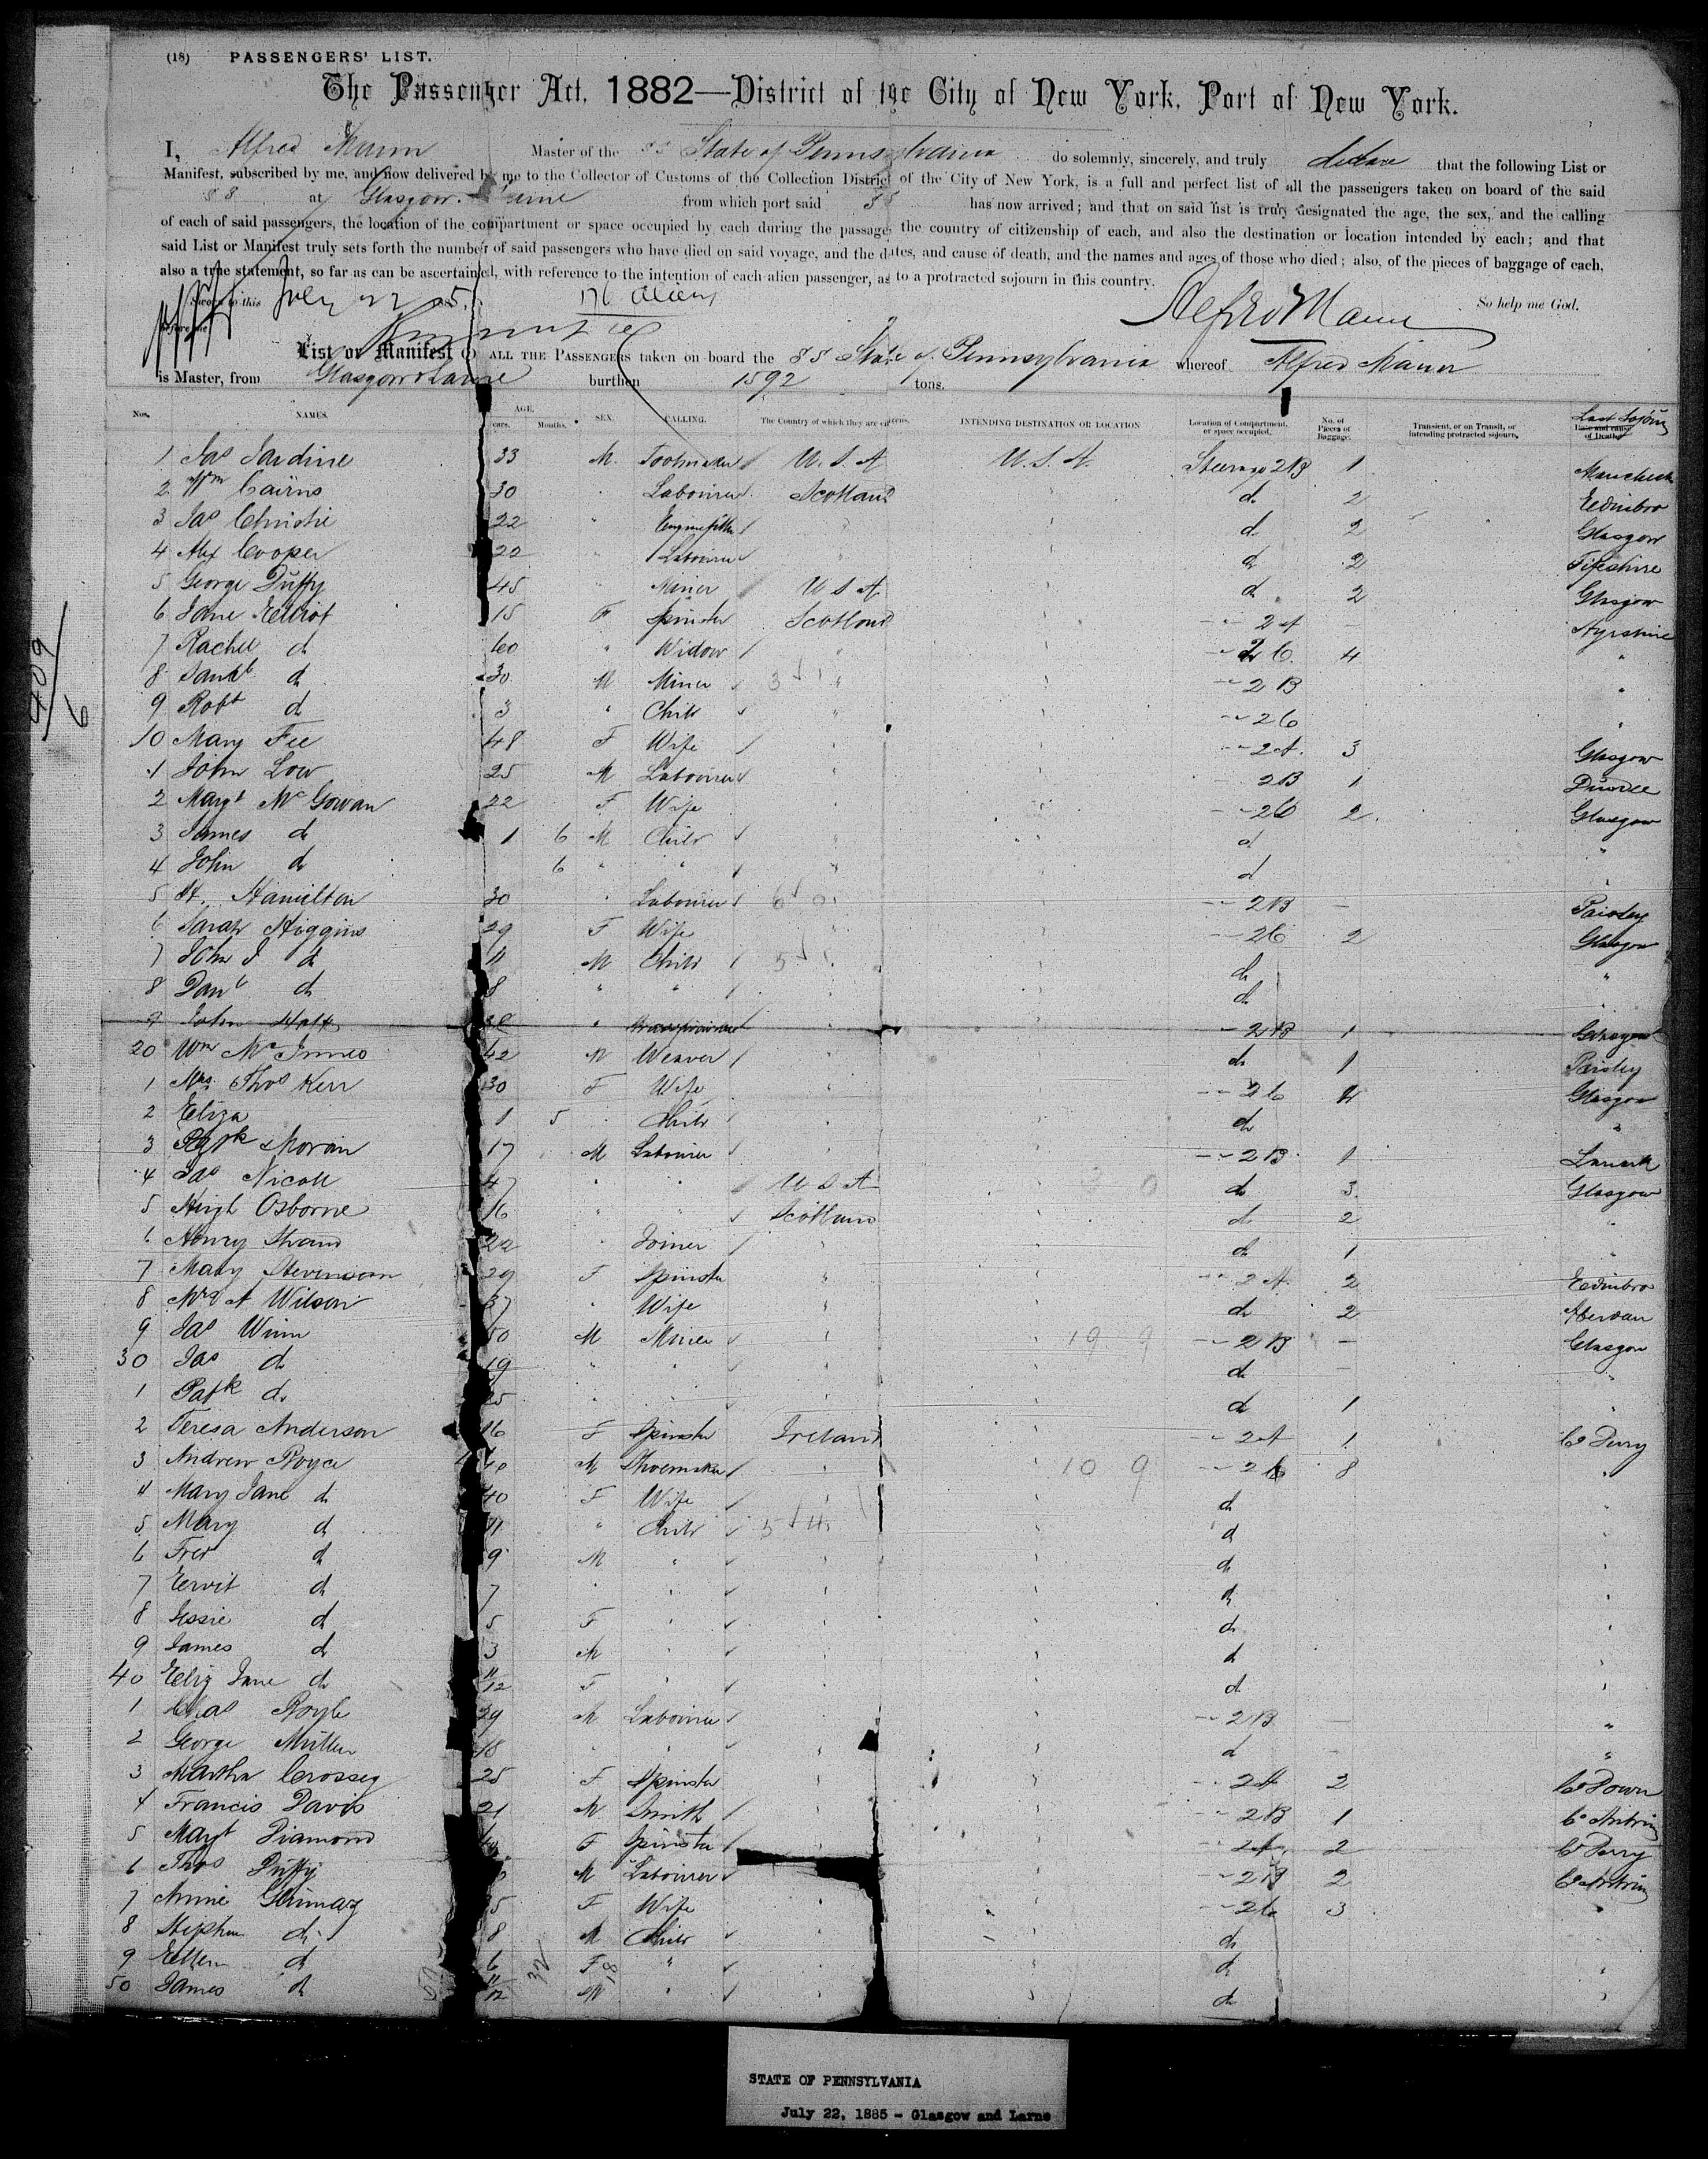 (18) PASSENGERS' LIST.
The Passenger Act, 1882—District of the City of New York, Port of New York.
I, Alfred Mann Master of the SS State of Pennsylvania do solemnly, sincerely, and truly declare that the following List or
Manifest, subscribed by me, and now delivered by me to the Collector of Customs of the Collection District of the City of New York, is a full and perfect list of all the passengers taken on board of the said
SS at Glasgow. Larne from which port said SS has now arrived; and that on said list is truly designated the age, the sex, and the calling
of each of said passengers, the location of the compartment or space occupied by each during the passage, the country of citizenship of each, and also the destination or location intended by each; and that
said List or Manifest truly sets forth the number of said passengers who have died on said voyage, and the dates, and cause of death, and the names and ages of those who died; also, of the pieces of baggage of each,
also a true statement, so far as can be ascertained, with reference to the intention of each alien passenger, as to a protracted sojourn in this country.
Sworn to this July 22 1885 176 aliens Alfred Mann So help me God.
before me
List or Manifest OF ALL THE PASSENGERS taken on board the SS State of Pennsylvania whereof Alfred Mann
is Master, from Glasgow & Larne burthen 1592 tons.
Nos. NAMES. AGE. Years. Months. SEX. CALLING. The Country of which they are citizens. INTENDING DESTINATION OR LOCATION Location of Compartment, or space occupied. No. of Pieces of Baggage. Transient, or on Transit, or intending protracted sojourn. Last Sojourn Date and cause of Death.
1 Jas Jardine 33 M. Toolmaker U. S. A U. S. A. Steerage 2B 1 Manchester
2 Wm Cairns 30 " Labourer Scotland " do 2 Edinbro
3 Jas Christie 22 " Enginefitter " " do 2 Glasgow
4 Alex Cooper 22 " Labourer " " do 2 Fifeshire
5 George Duffy 45 " Miner U S A " do 2 Glasgow
6 Jane Elliot 15 F Spinster Scotland " " 2A Ayrshire
7 Rachel do 60 " Widow " " " 2C. 4 "
8 Saml do 30 M Miner " " " 2B "
9 Robt do 3 " Child " " " 2C "
10 Mary Fee 48 F Wife " " " 2A. 3 Glasgow
1 John Low 25 M Labourer " " 2B 1 Dundee
2 Margt McGowan 22 F Wife " " " 2C 2. Glasgow
3 James do 1 6 M Child " " do "
4 John do 6 " " " " do "
5 A. Hamilton 30 " Labourer " " " 2B — Paisley
6 Sarah Higgins 29 F Wife " " " 2C 2 Glasgow
7 John J do 11 M Child " " do "
8 Danl do 8 " " " " do "
9 John 38 " " " " 2B 1 Glasgow
20 Wm McInnes 42 M Weaver " " do 1 Paisley
1 Mrs Thos Kerr 30 F Wife " " " 2C 4 Glasgow
2 Eliza 1 5 " Child " " do "
3 Patk Moran 17 M Labourer " " " 2B 1 Lanark
4 Jas Nicoll 47 " " U S A " do 3 Glasgow
5 Hugh Osborne 16 " " Scotland " do 2 "
6 Henry 22 " Joiner " " do 1 "
7 Mary Stevenson 29 F Spinster " " " 2A. 2 Edinbro
8 Mrs A Wilson 37 " Wife " " do 2
9 Jas Winn 50 M Miner " " " 2B — Glasgow
30 Jas do 19 " " " " do — "
1 Patk do 25 " " " " do 1 "
2 Teresa Anderson 16 F Spinster Ireland " " 2A 1 Co Derry
3 Andrew 40 M Shoemaker " " " 2C 8 "
4 Mary Jane do 40 F Wife " " do "
5 Mary do 11 " Child " " do "
6 Fred do 9 M " " " do "
7 do 7 " " " " do "
8 Jessie do 5 F " " " do "
9 James do 3 M " " " do "
40 Eliz Jane do 11/12 F " " " do "
1 Chas 29 M Labourer " " " 2B — "
2 George Mullen 18 " " " " do — "
3 Martha Crossey 25 F Spinster " " " 2A 2 Co Down
4 Francis Davis 21 M Smith " " " 2B 1 Co Antrim
5 Margt Diamond F Spinster " " " 2A. 2 Co Derry
6 Thos Duffy M Labourer " " " 2B 2 Co Antrim
7 Annie F Wife " " " 2C 3 "
8 Stephen do 8 M Child " " do
9 Ellen do 6 F " " " do "
50 James do 11/12 M " " " do "
STATE OF PENNSYLVANIA
July 22, 1885 - Glasgow and Larne